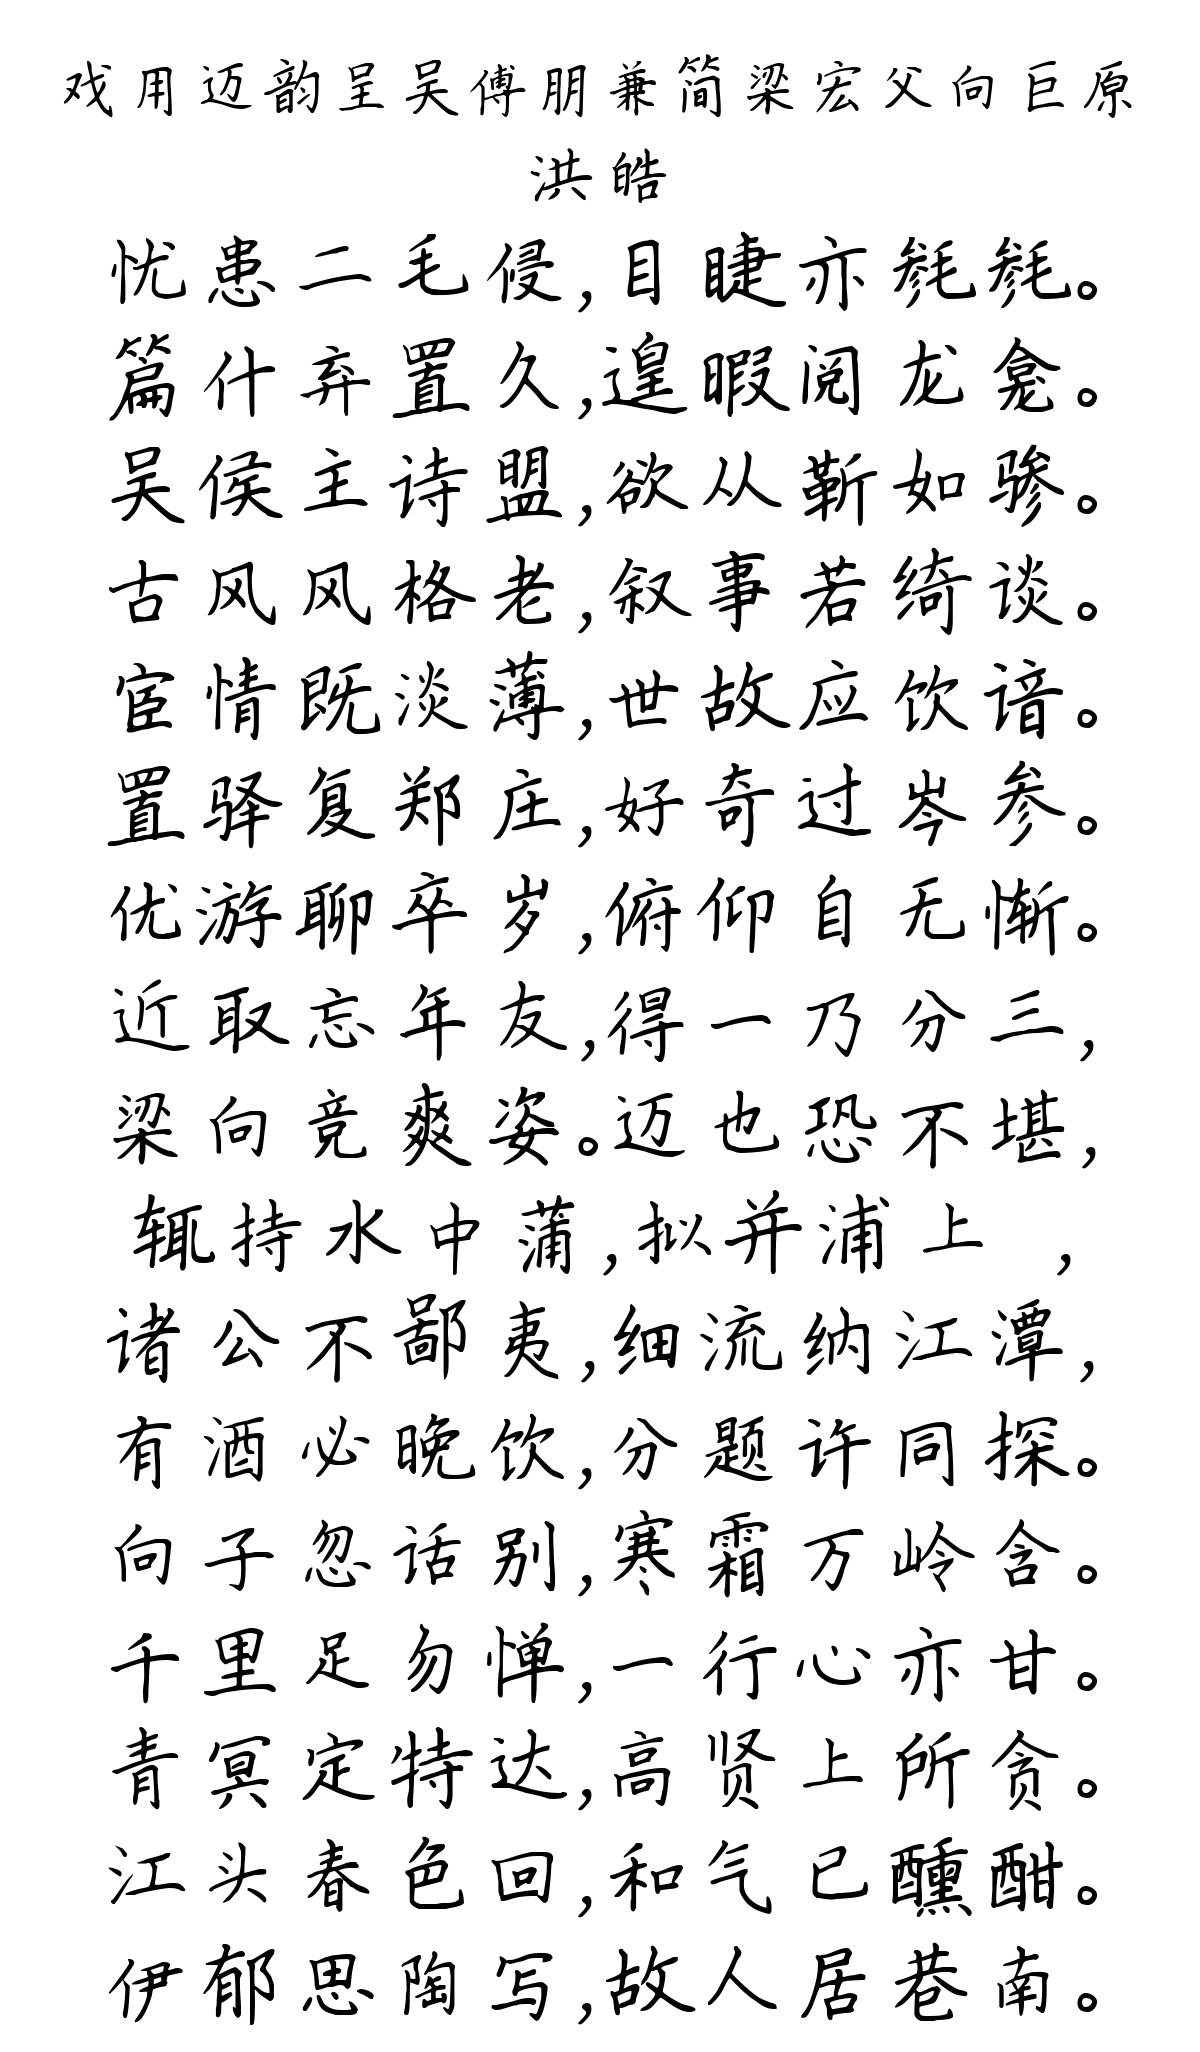 戏用迈韵呈吴傅朋兼简梁宏父向巨原
洪皓
忧患二毛侵,目睫亦毵毵。
篇什弃置久,遑暇阅龙龛。
吴侯主诗盟,欲从靳如骖。
古风风格老,叙事若绮谈。
宦情既淡薄,世故应饮谙。
置驿复郑庄,好奇过岑参。
优游聊卒岁,俯仰自无惭。
近取忘年友,得一乃分三,
梁向竞爽姿。迈也恐不堪,
辄持水中蒲,拟并浦上 ,
诸公不鄙夷,细流纳江潭,
有酒必晚饮,分题许同探。
向子忽话别,寒霜万岭含。
千里足勿惮,一行心亦甘。
青冥定特达,高贤上所贪。
江头春色回,和气已醺酣。
伊郁思陶写,故人居巷南。